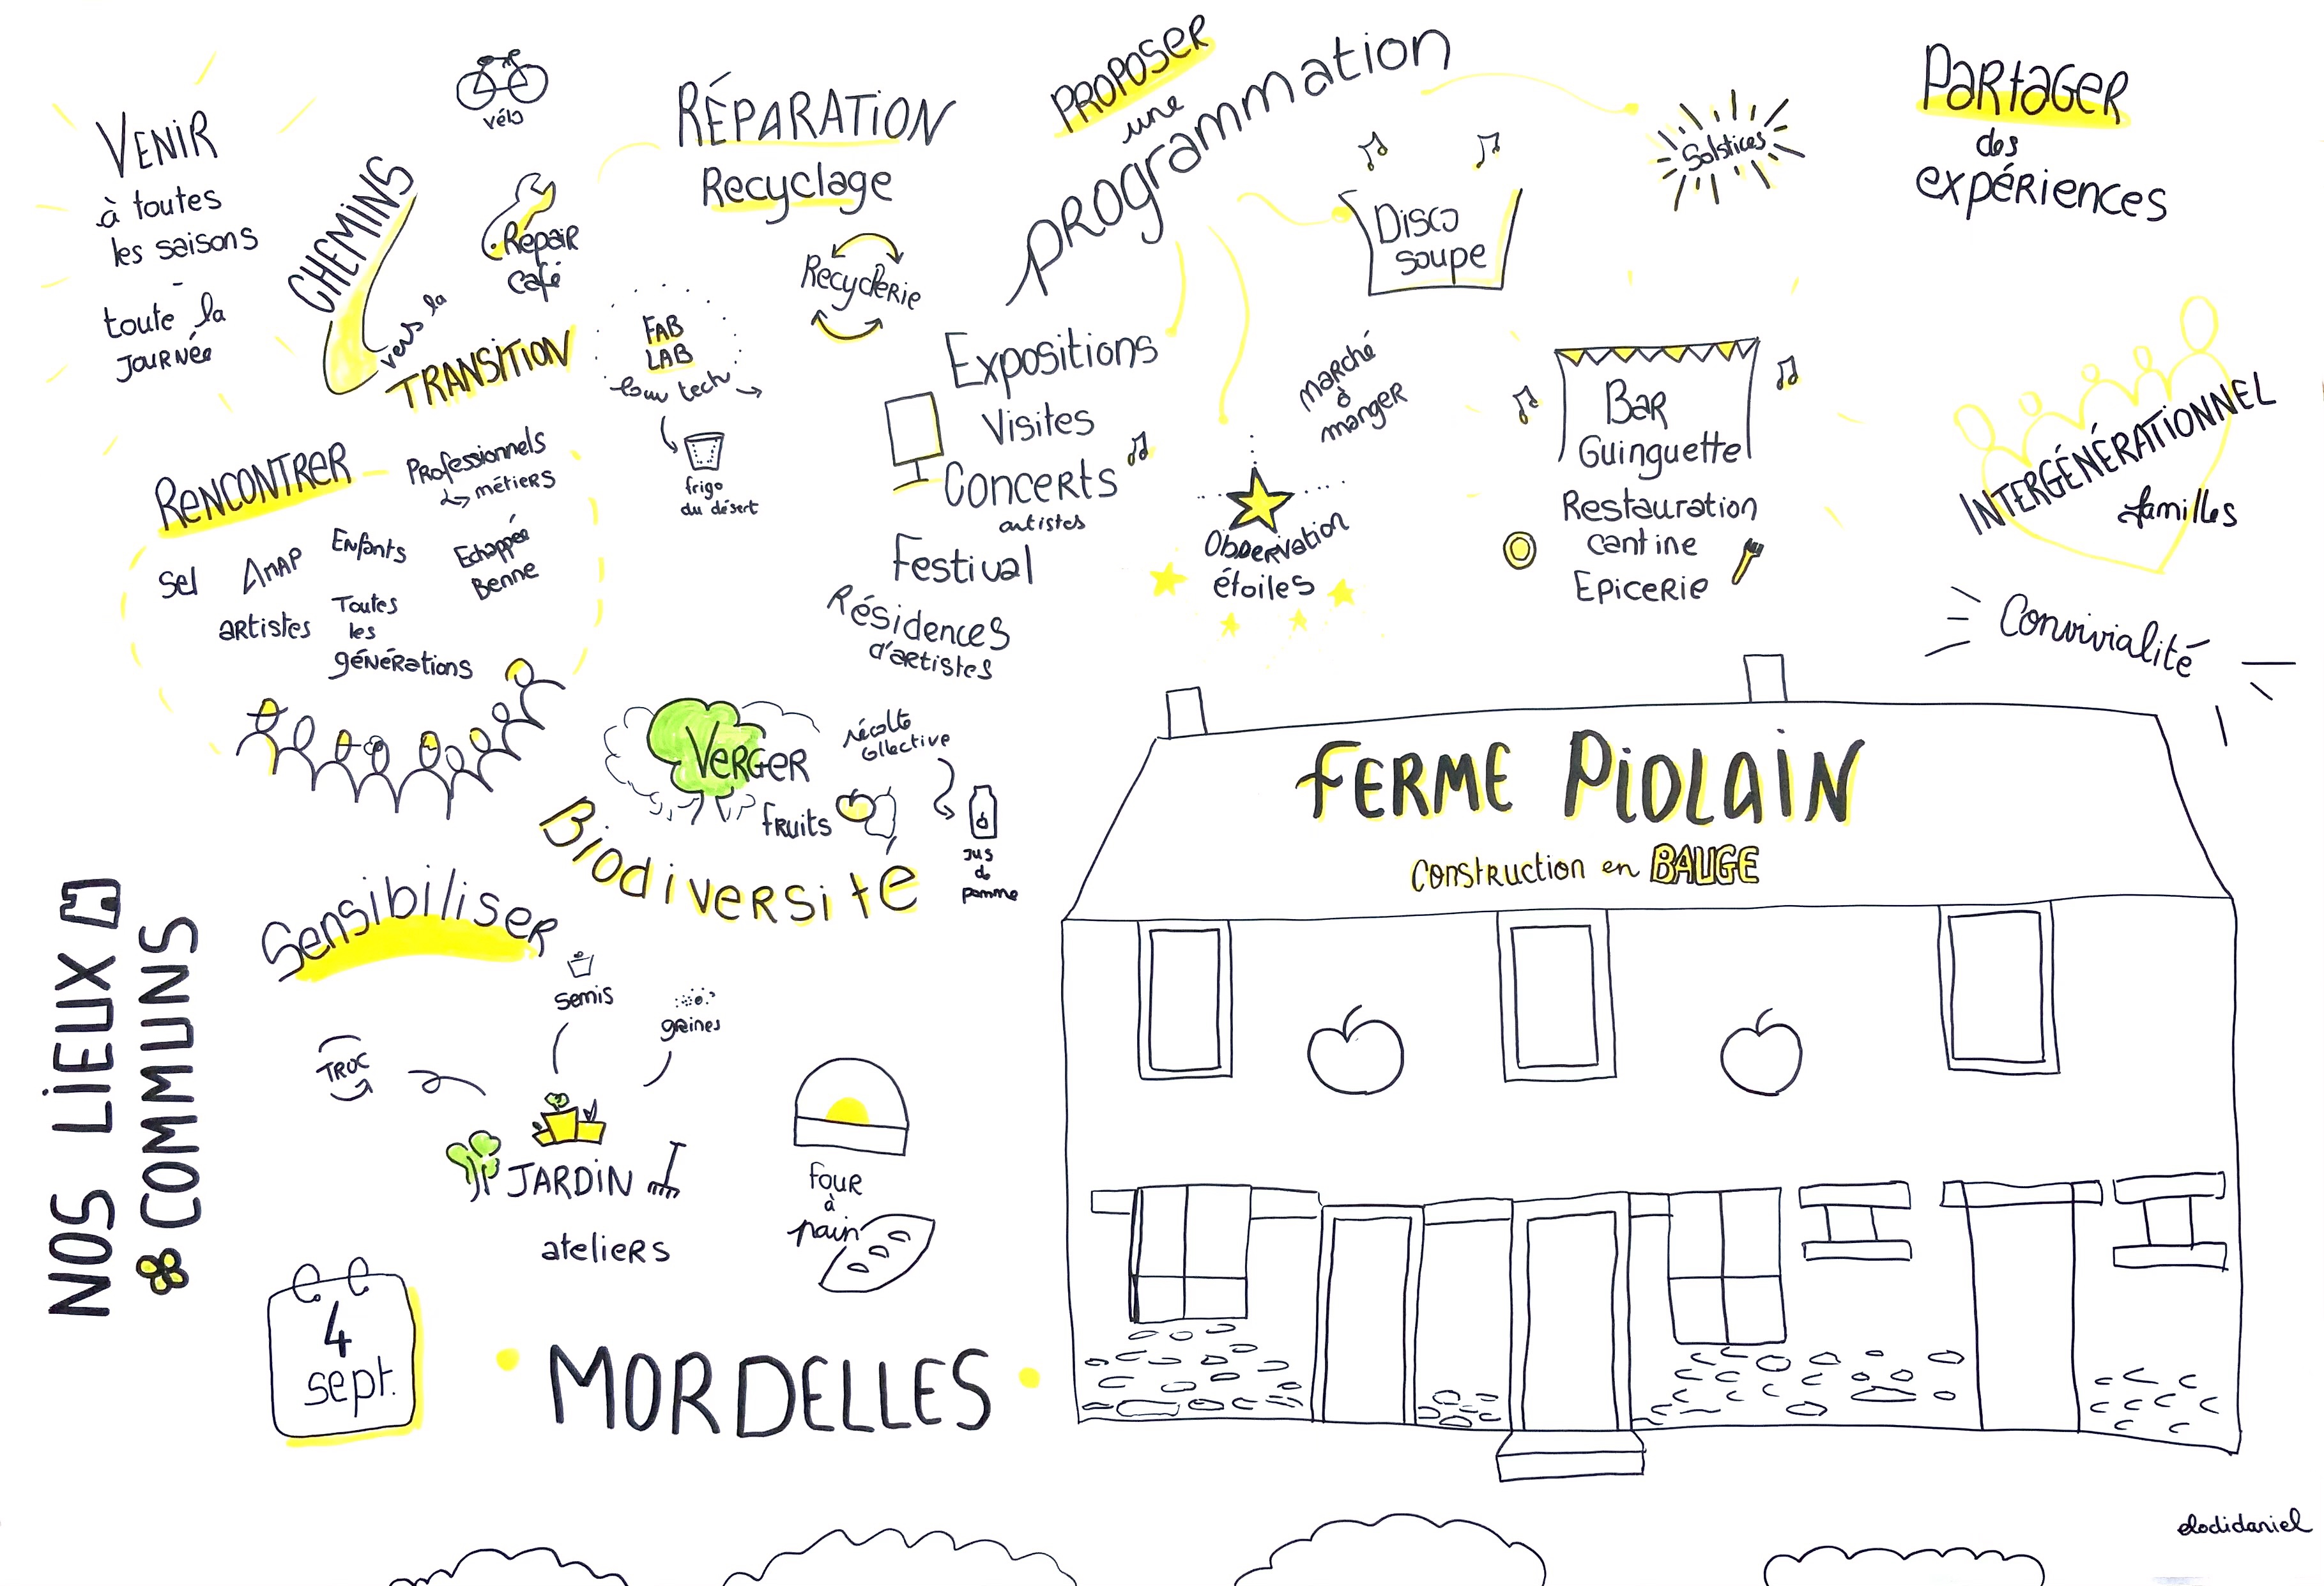 VENIR
à toutes
les saisons
-
toute la
JOURNée
CHEMINS
vers la
TRANSITION
vélo
Répair
café
RÉPARATION
Recyclage
Recyclerie
FAB
LAB
low tech
frigo
du désert
PROPOSER
une
programmation
Disco
soupe
Solstices
PARTAGER
des
expériences
RENCONTRER
Professionnels
métiers
Sel
AMAP
Enfants
Echappée
Benne
artistes
Toutes
les
générations
Expositions
Visites
Concerts
artistes
Festival
Résidences
d'artistes
marché
à
manger
Observation
étoiles
Bar
Guinguette
Restauration
cantine
Epicerie
INTERGÉNÉRATIONNEL
familles
Convivialité
VERGER
fruits
récolte
collective
Jus
de
pomme
Biodiversité
Sensibiliser
semis
graines
TROC
JARDIN
ateliers
four
à
pain
NOS LIEUX
COMMUNS
4
sept.
MORDELLES
FERME PIOLAIN
Construction en BAUGE
elodidaniel